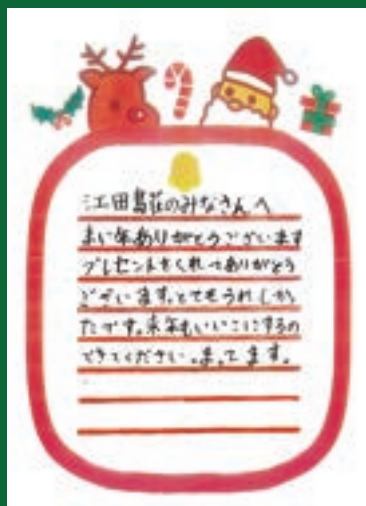 江田島荘のみなさんへ
まい年ありがとうございます
プレゼントをくれてありがとう
ございます。とてもうれしかっ
たです。来年もいいこにするの
できてください。まってます。